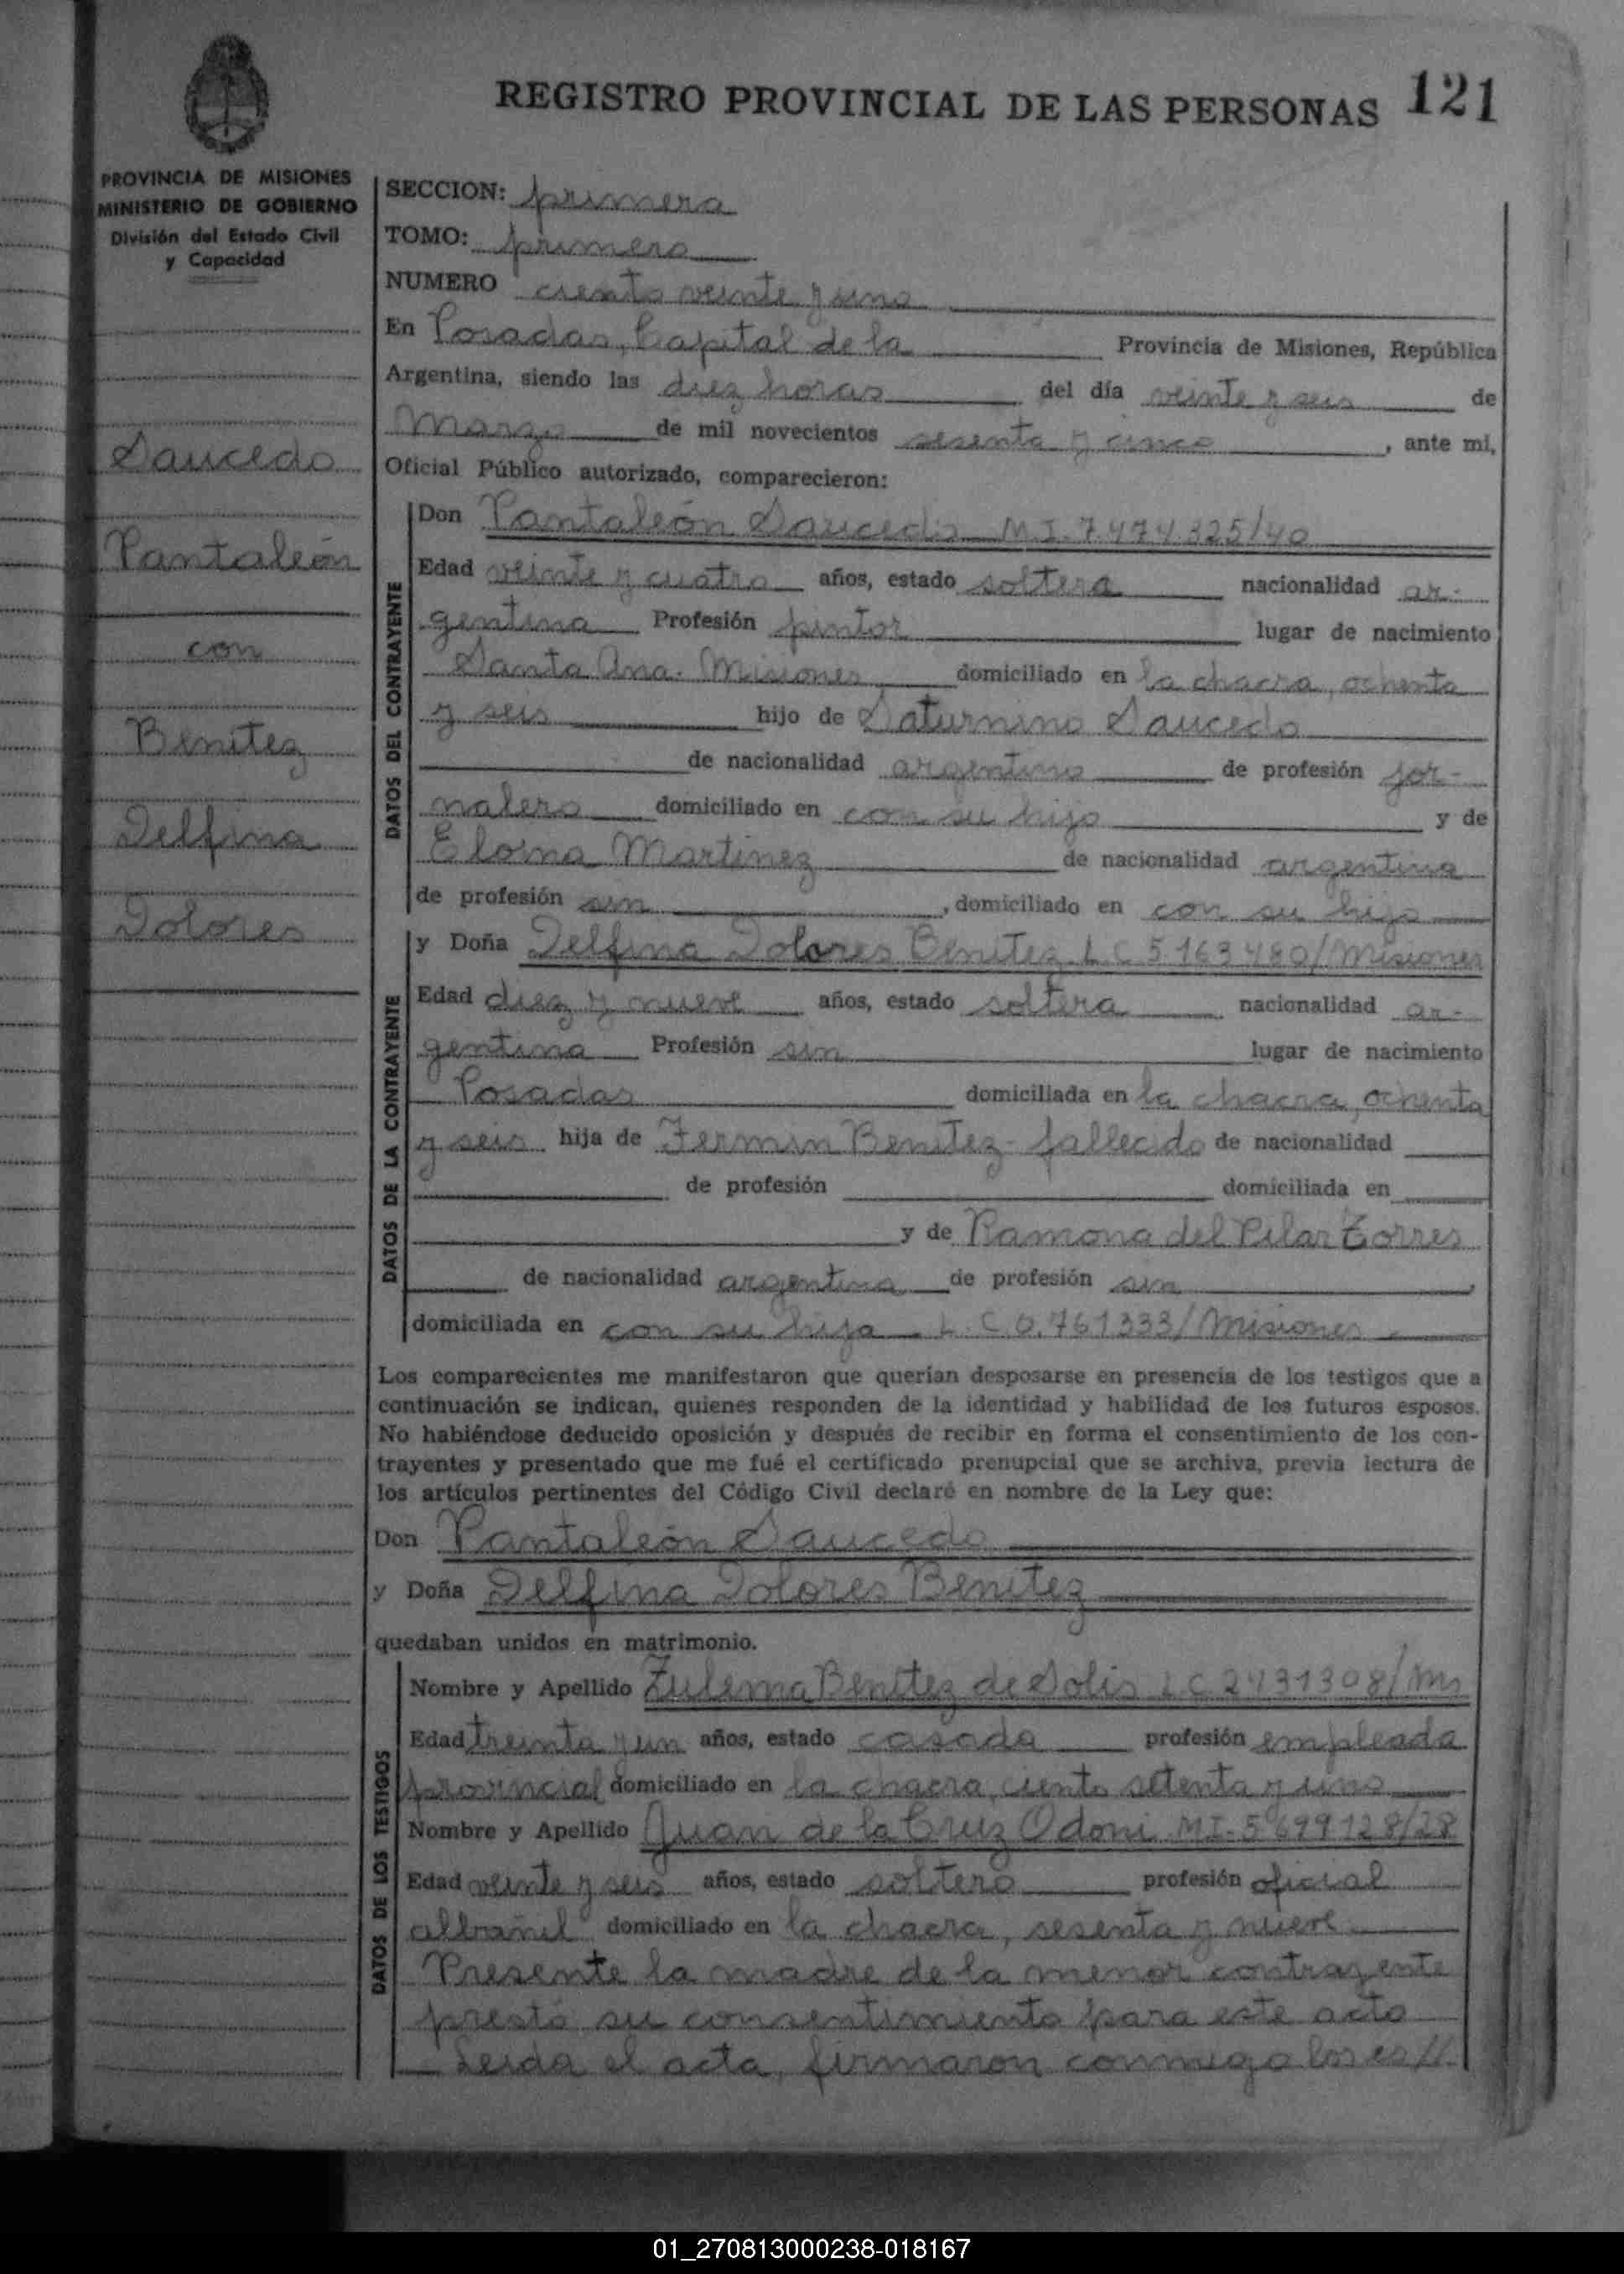 REGISTRO PROVINCIAL DE LAS PERSONAS 121
PROVINCIA DE MISIONES
MINISTERIO DE GOBIERNO
División del Estado Civil
y Capacidad
Saucedo
Pantaleón
con
Benitez
Delfina
Dolores
SECCION: primera
TOMO: primero
NUMERO ciento veinte y uno
En Posadas, Capital de la Provincia de Misiones, República
Argentina, siendo las diez horas del día veinte y seis de
Marzo de mil novecientos sesenta y cinco, ante mi,
Oficial Público autorizado, comparecieron:
DATOS DEL CONTRAYENTE
Don Pantaleón Saucedo M.I. 7.474.325/40
Edad veinte y cuatro años, estado soltero nacionalidad ar-
gentina Profesión pintor lugar de nacimiento
Santa Ana. Misiones domiciliado en la chacra, ochenta
y seis hijo de Saturnino Saucedo
de nacionalidad argentino de profesión jor-
nalero domiciliado en con su hijo y de
Eloina Martinez de nacionalidad argentina
de profesión sin, domiciliado en con su hijo
DATOS DE LA CONTRAYENTE
y Doña Delfina Dolores Benitez L.C 5.163.480/Misiones
Edad diez y nueve años, estado soltera nacionalidad ar-
gentina Profesión sin lugar de nacimiento
Posadas domiciliada en la chacra, ochenta
y seis hija de Fermin Benitez - fallecido de nacionalidad
de profesión domiciliada en
y de Ramona del Pilar Torres
de nacionalidad argentina de profesión sin,
domiciliada en con su hija L.C 0.761333/Misiones
Los comparecientes me manifestaron que querían desposarse en presencia de los testigos que a
continuación se indican, quienes responden de la identidad y habilidad de los futuros esposos.
No habiéndose deducido oposición y después de recibir en forma el consentimiento de los con-
trayentes y presentado que me fué el certificado prenupcial que se archiva, previa lectura de
los artículos pertinentes del Código Civil declaré en nombre de la Ley que:
Don Pantaleón Saucedo
y Doña Delfina Dolores Benitez
quedaban unidos en matrimonio.
DATOS DE LOS TESTIGOS
Nombre y Apellido Zulema Benitez de Solis L.C. 2431308/Ms
Edad treinta y un años, estado casada profesión empleada
provincial domiciliado en la chacra, ciento setenta y uno
Nombre y Apellido Juan de la Cruz Odoni MI-5699128/28
Edad veinte y seis años, estado soltero profesión oficial
albañil domiciliado en la chacra, sesenta y nueve
Presente la madre de la menor contrayente
prestó su consentimiento para este acto
Leida el acta, firmaron conmigo los es//
01_270813000238-018167